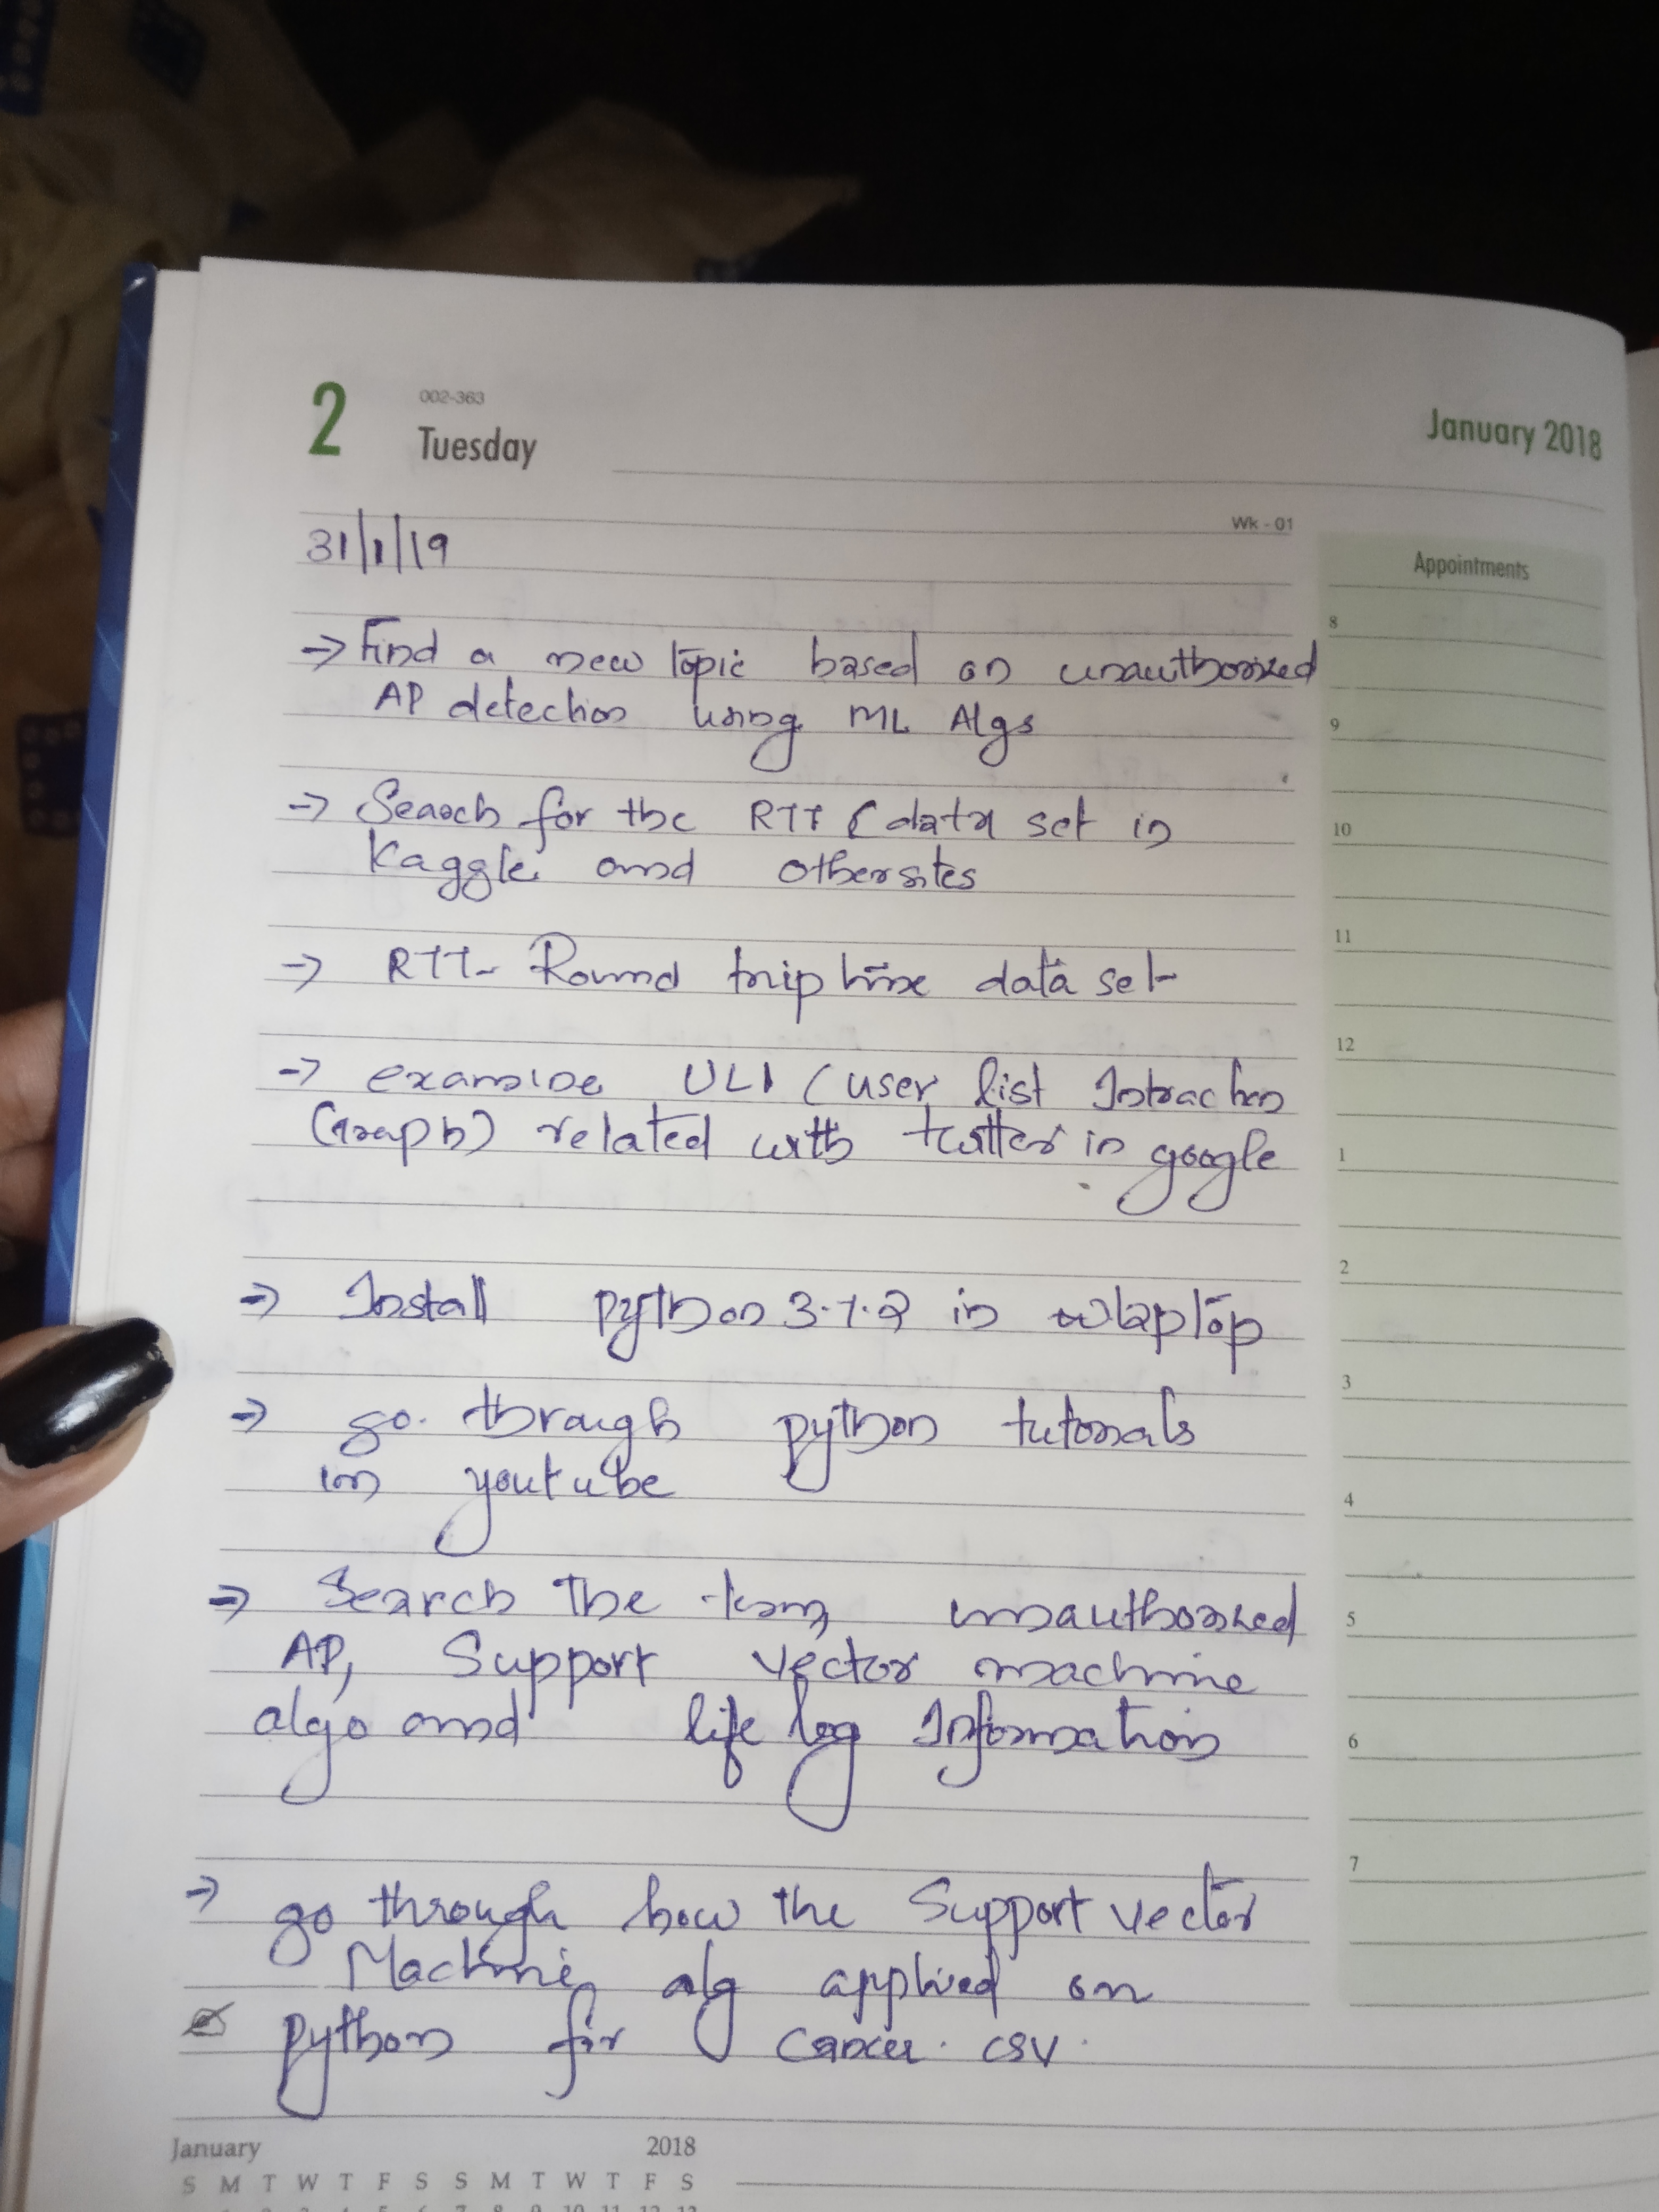 2
002-363
Tuesday
January 2018
Wk - 01
31/1/19
Appointments
→ Find a new topic based on unauthorized
AP detection using ML Algs
→ Search for the RTT ( data set in
Kaggle and other sites
→ RTT- Round trip time data set
→ examine ULI ( user list Intraction
Graph) related with twitter in google
→ Install python 3.7.2 in laptop
→ go through python tutorials
in youtube
→ Search the unauthorized
AP, Support vector machine
algo and life log Information
→ go through how the Support vector
Machine alg applied on
python for cancer. csv.
8
9
10
11
12
1
2
3
4
5
6
7
January 2018
S M T W T F S S M T W T F S